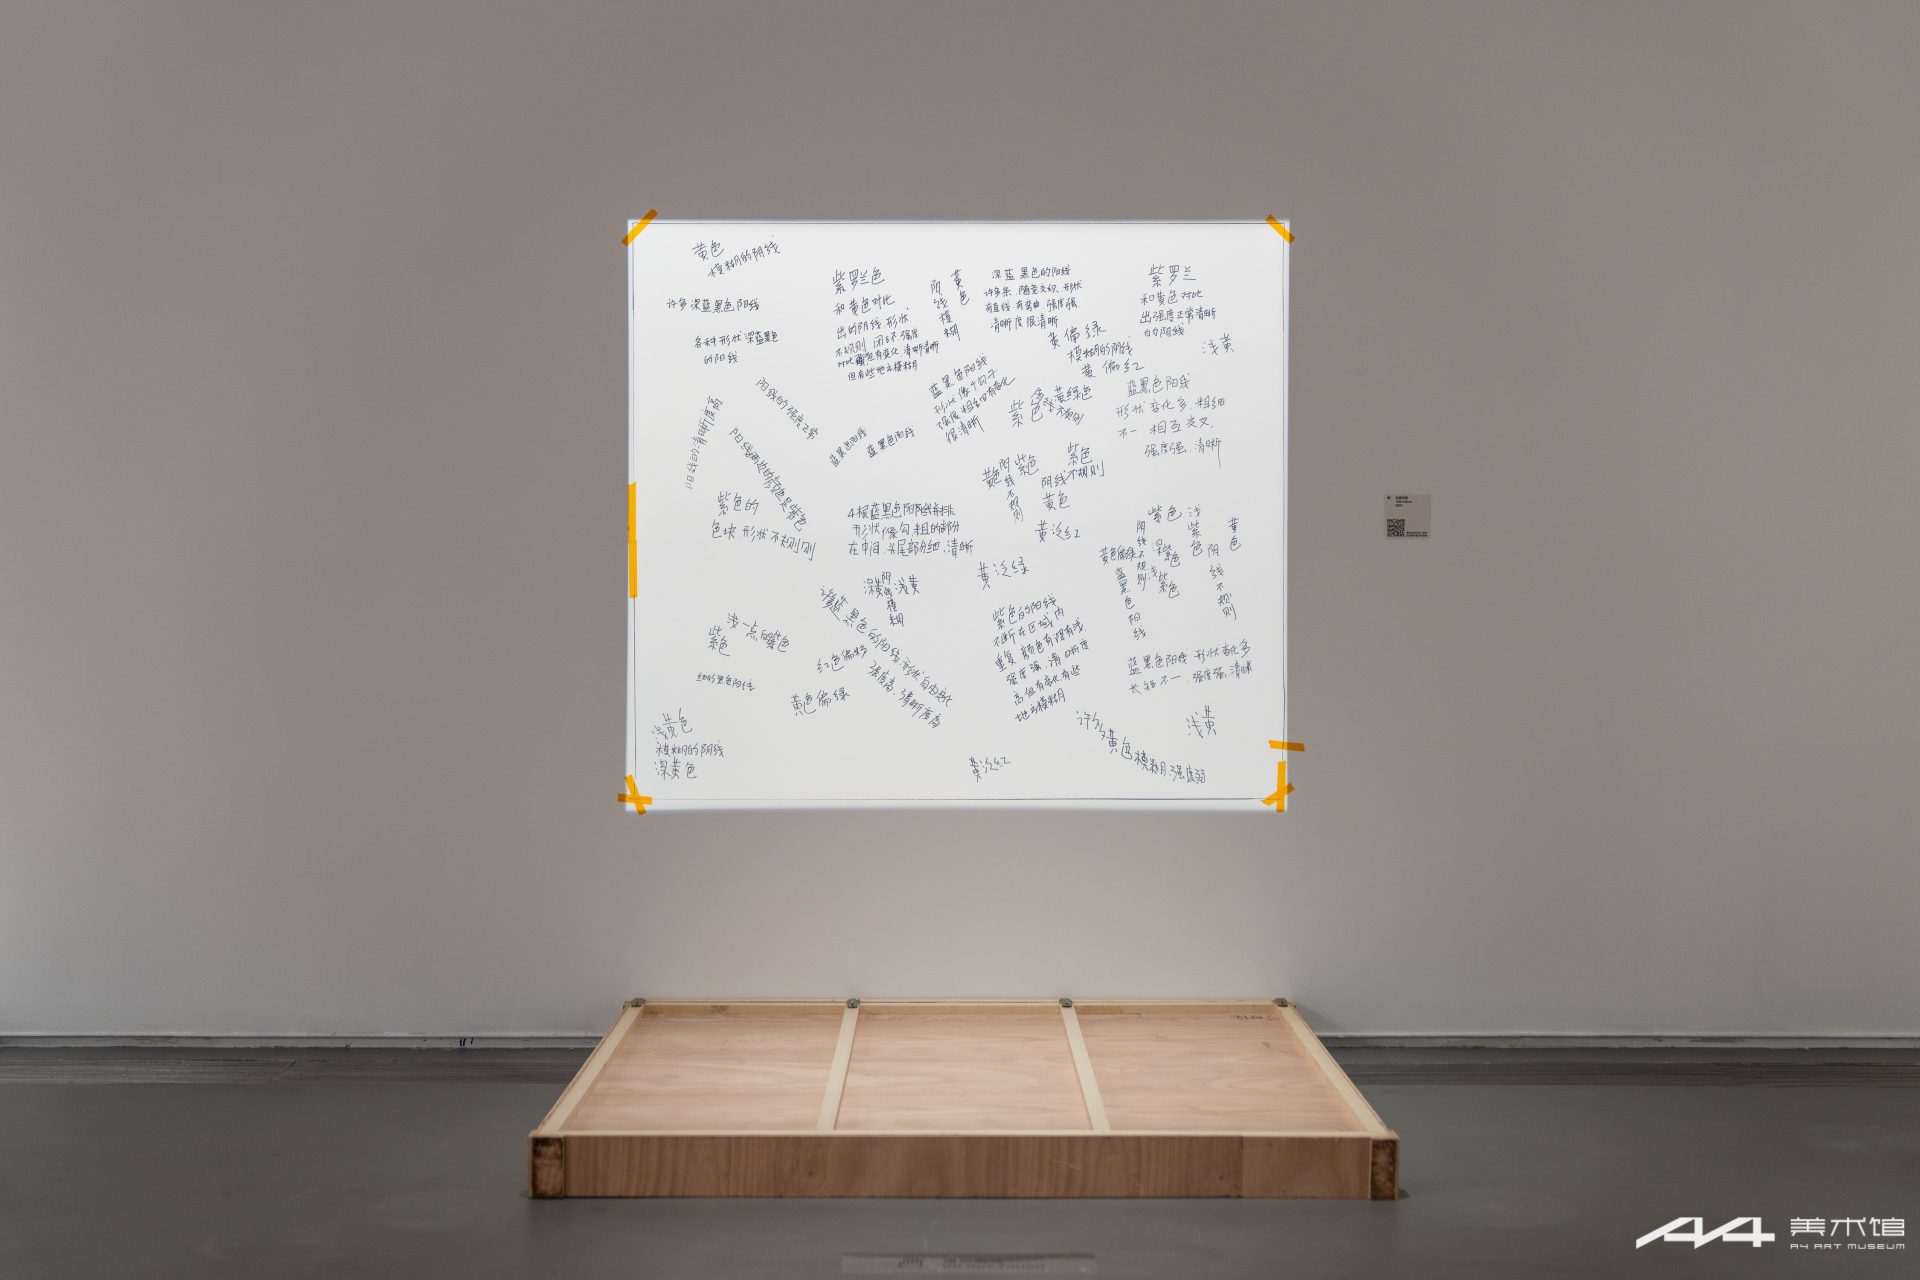 黄色
模糊的阴线
许多深蓝黑色阳线
各种形状深蓝黑色
的阳线
紫罗兰色
和黄色对比
出的阴线.形状
不规则 闭环 强度
对比 但有变化.清晰清晰
但有些地方模糊
黄色
阴线模糊
深蓝黑色的阳线
许多条.随意交织.形状
有直线.有弯曲.强度强.
清晰度很清晰
紫罗兰
和黄色对比
出强度正常清晰
的阴线
浅黄
黄偏绿
模糊的阴线
黄偏红
蓝黑色阳线
形状变化多.粗细
不一.相互交叉.
强度强.清晰
阳线的强度正常
阳线的清晰度高
阳线两边的颜色是紫色
蓝黑色阳线
蓝黑色阳线
蓝黑色阳线
形状像个句子
强度粗细有变化
很清晰
紫色
黄绿色
不规则
紫色的
色块.形状不规则则
4根蓝黑色阳线并排
形状像勾.粗的部分
在中间.头尾部分细.清晰
黄色
阴线不规则
紫色
紫色
阴线不规则
黄色
黄泛红
黄泛绿
紫色
浅紫色
黄色
阴线不规则
深紫色
浅紫色
黄色偏绿
蓝黑色阳线
阴线不规则
深黄
阴线模糊
浅黄
浅一点的紫色
紫色
红色偏粉
黄色偏绿
黑色的阳线.形状自由变化
强度高.清晰度高
紫色的阳线
不断在区域内
重复.颜色有深有浅.
强度强.清晰度
高但有变化有些
地方模糊
蓝黑色阳线.形状变化多
长短不一.强度强.清晰
浅黄色
模糊的阴线
深黄色
黄泛红
许多黄色模糊.强度弱
浅黄
A4 美术馆
A4 ART MUSEUM